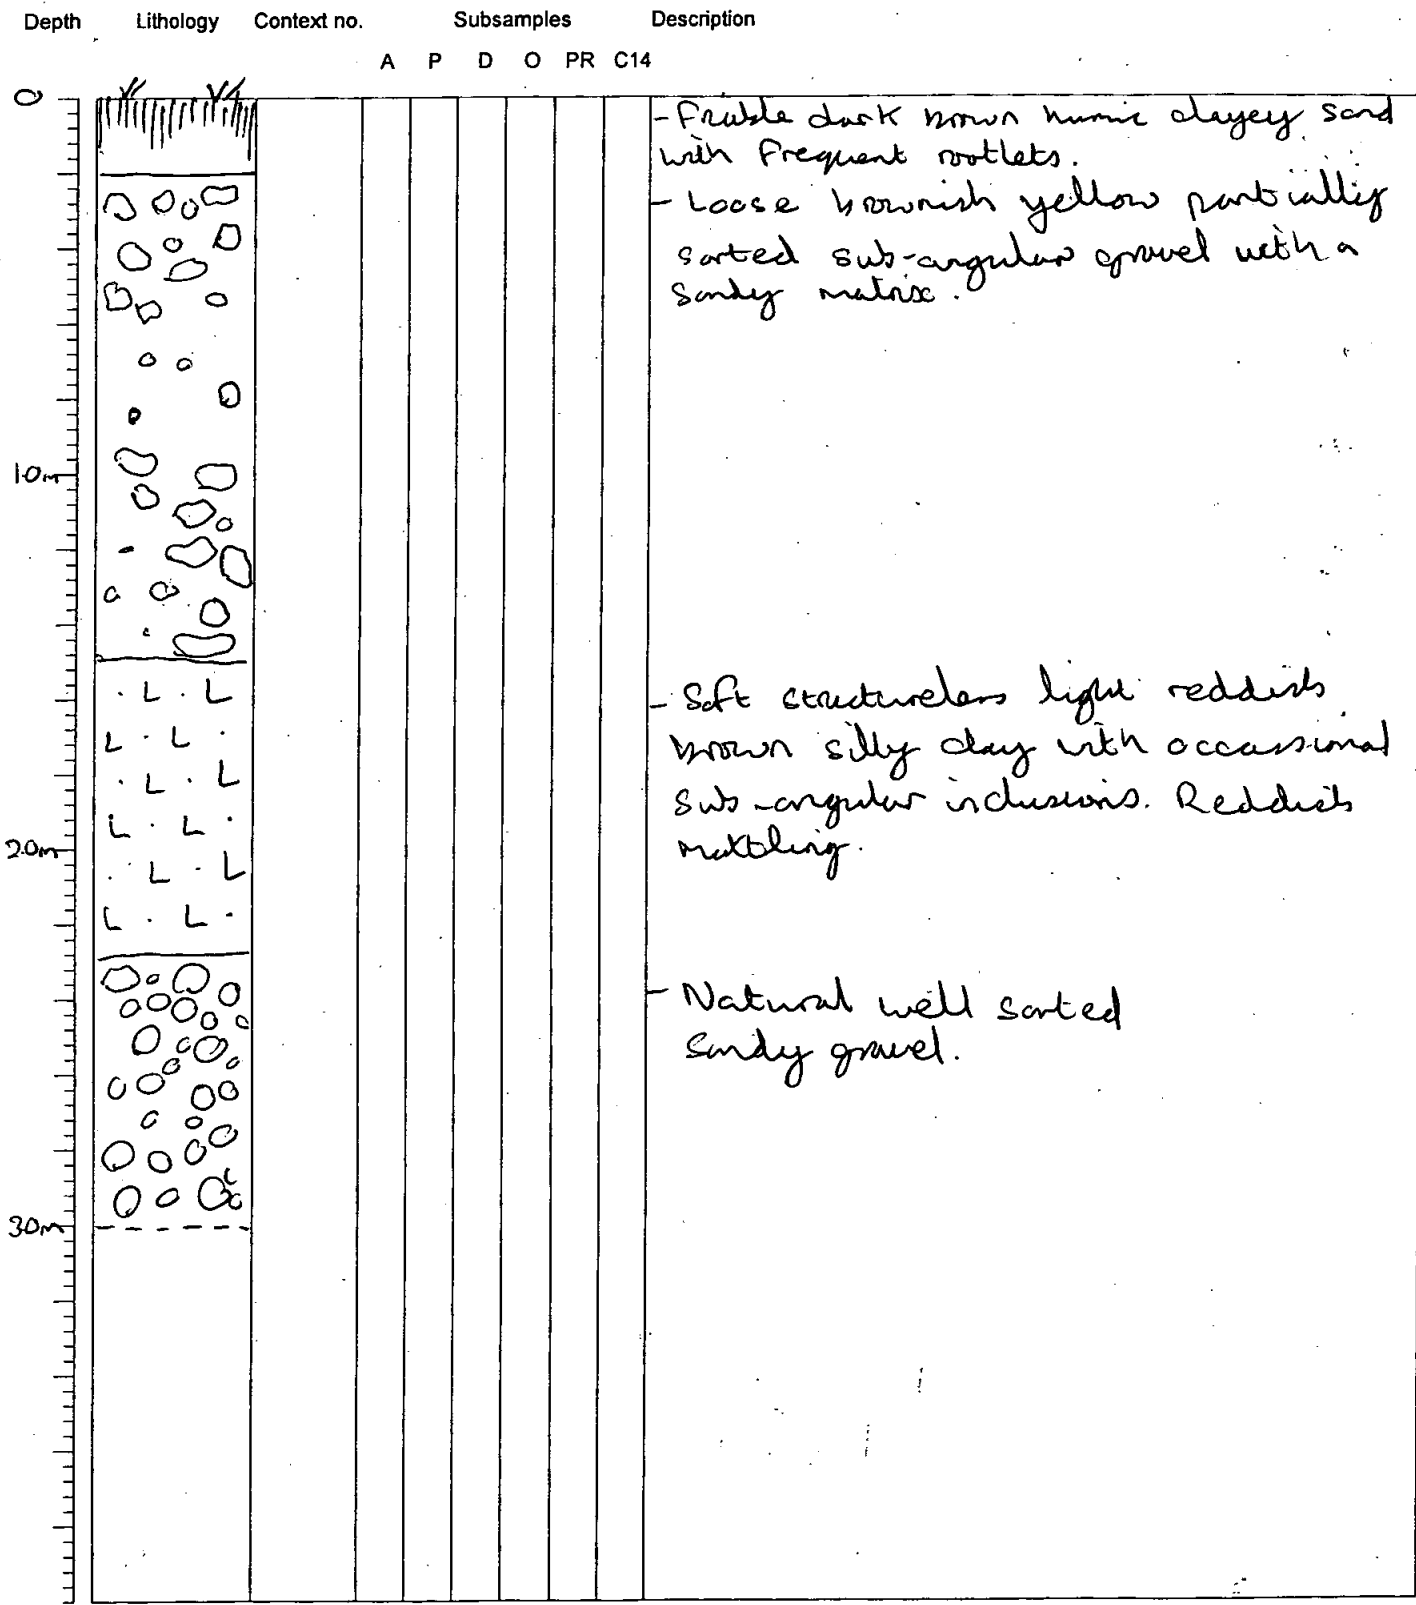 Depth Lithology Context no. Subsamples Description
A P D O PR C14
0
- Friable dark brown humic clayey sand
with frequent rootlets.
- Loose brownish yellow partially
sorted sub-angular gravel with a
sandy matrix.
1.0m
- Soft structureless light reddish
brown silty clay with occassional
sub-angular inclusions. Reddish
mottling.
2.0m
- Natural well sorted
sandy gravel.
3.0m